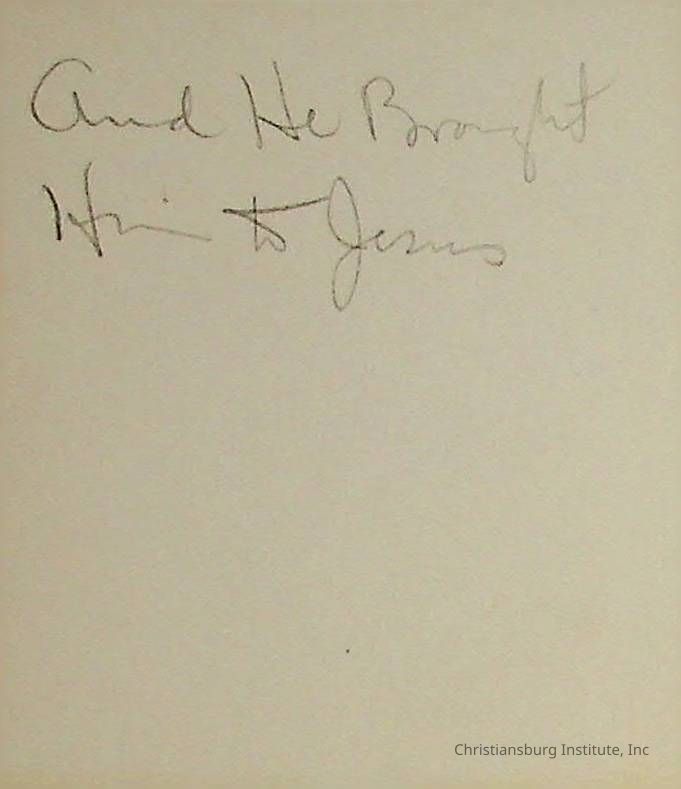 And He Brought
Him to Jesus
Christiansburg Institute, Inc